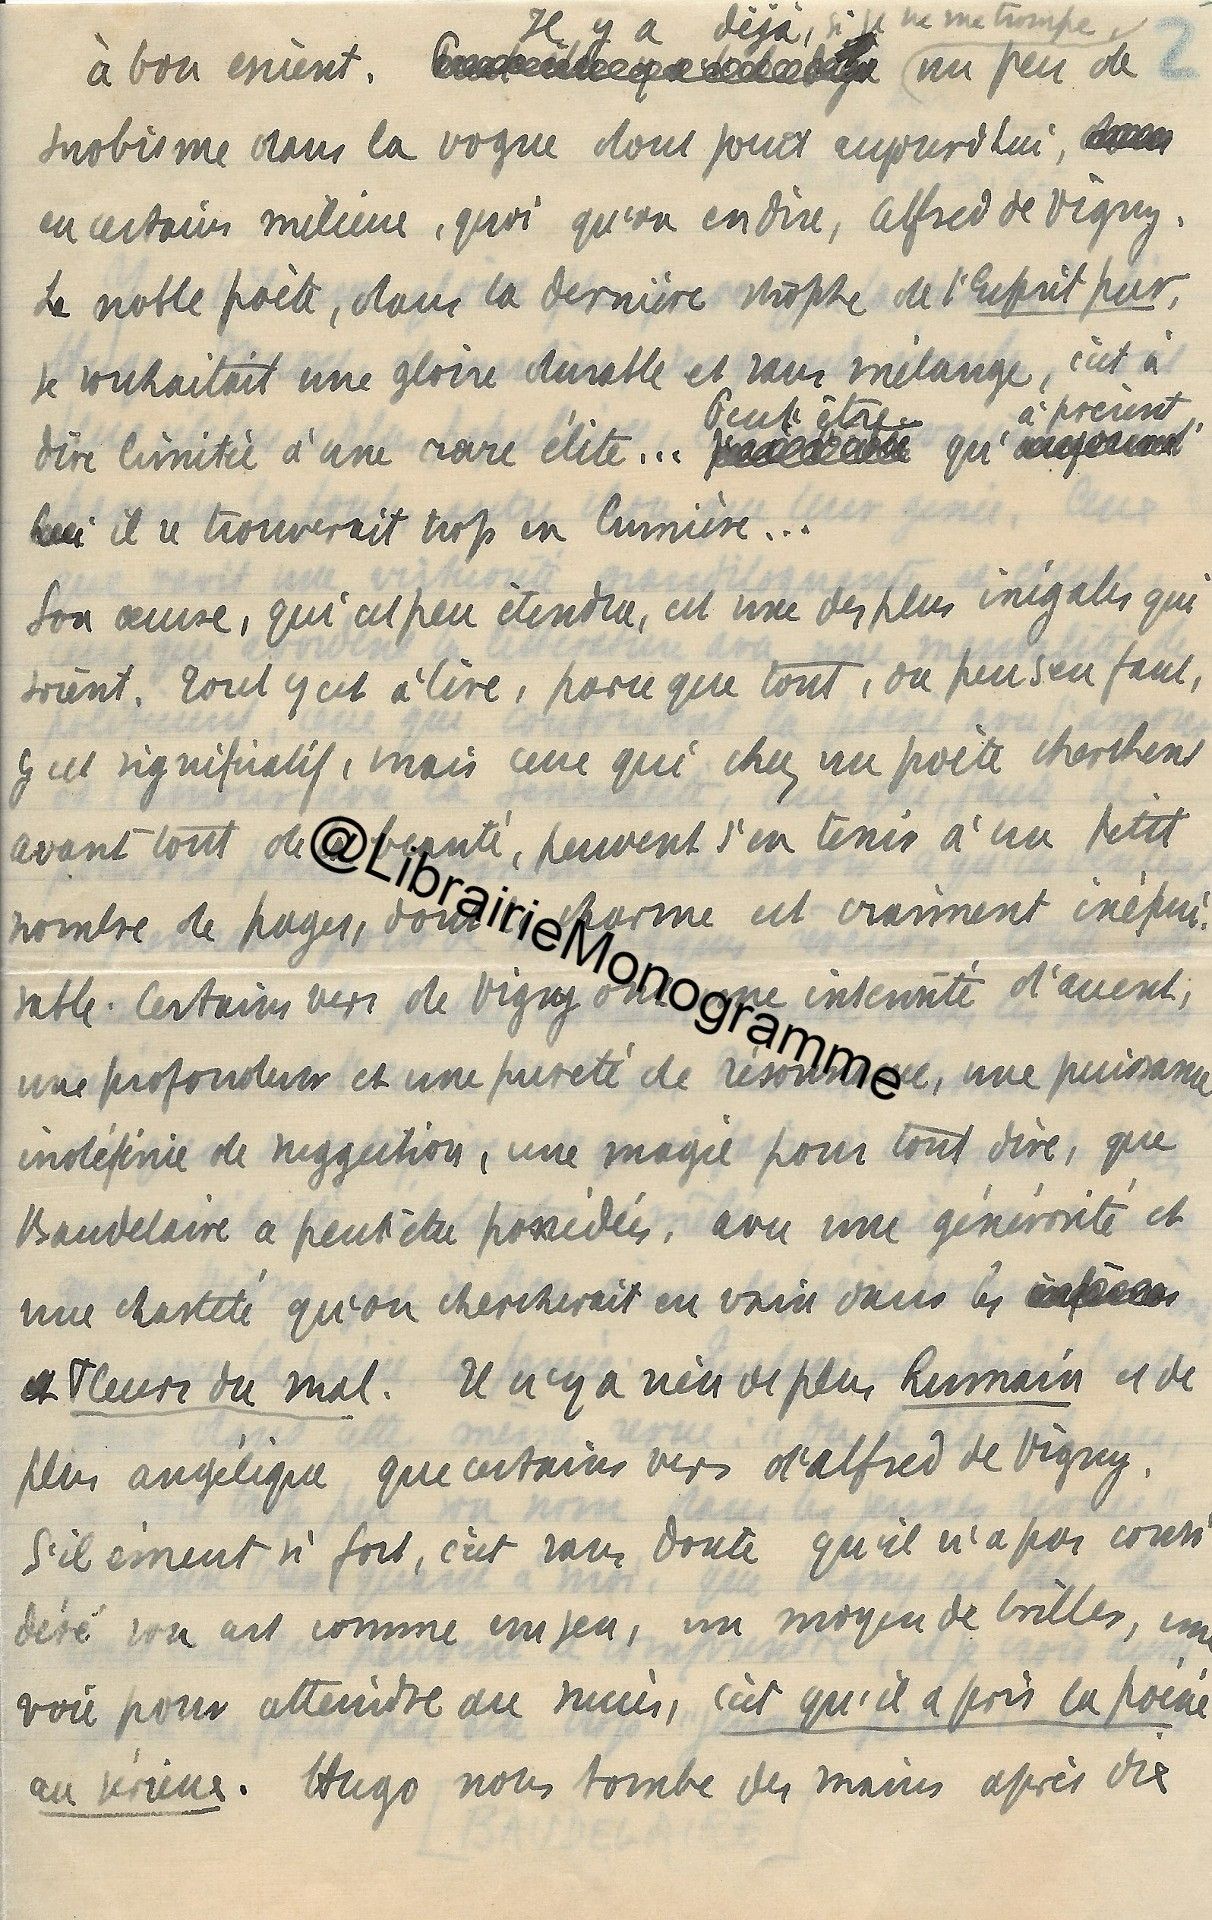 Il y a déjà, si je ne me trompe, 2
à bon escient. un peu de
snobisme dans la vogue dont jouit aujourd'hui,
en certains milieux, quoi qu'on en dise, Alfred de Vigny.
Le noble poète, dans la dernière strophe de l'Esprit pur,
se souhaitait une gloire durable et sans mélange, c'est à
Peut-être à présent,
dire limitée à une rare élite... qu'aujourd'
hui il se trouverait trop en lumière...
Son œuvre, qui est peu étendue, est une des plus inégales qui
soient. Tout y est à lire, parce que tout, ou peu s'en faut,
y est significatif, mais ceux qui chez un poète cherchent
avant tout de la beauté, peuvent s'en tenir à un petit
nombre de pages, dont le charme est vraiment inépui-
sable. Certains vers de Vigny ont une intensité d'accent,
une profondeur et une pureté de résonnance, une puissance
indéfinie de suggestion, une magie pour tout dire, que
Baudelaire a peut-être possédées, avec une générosité et
une chasteté qu'on chercherait en vain dans les
Fleurs du mal. Il n'y a rien de plus humain et de
plus angélique que certains vers d'Alfred de Vigny.
S'il émeut si fort, c'est sans doute qu'il n'a pas consi
déré son art comme un jeu, un moyen de briller, une
voie pour atteindre au succès, c'est qu'il a pris la poésie
au sérieux. Hugo nous tombe des mains après dix
[BAUDELAIRE]
@LibrairieMonogramme